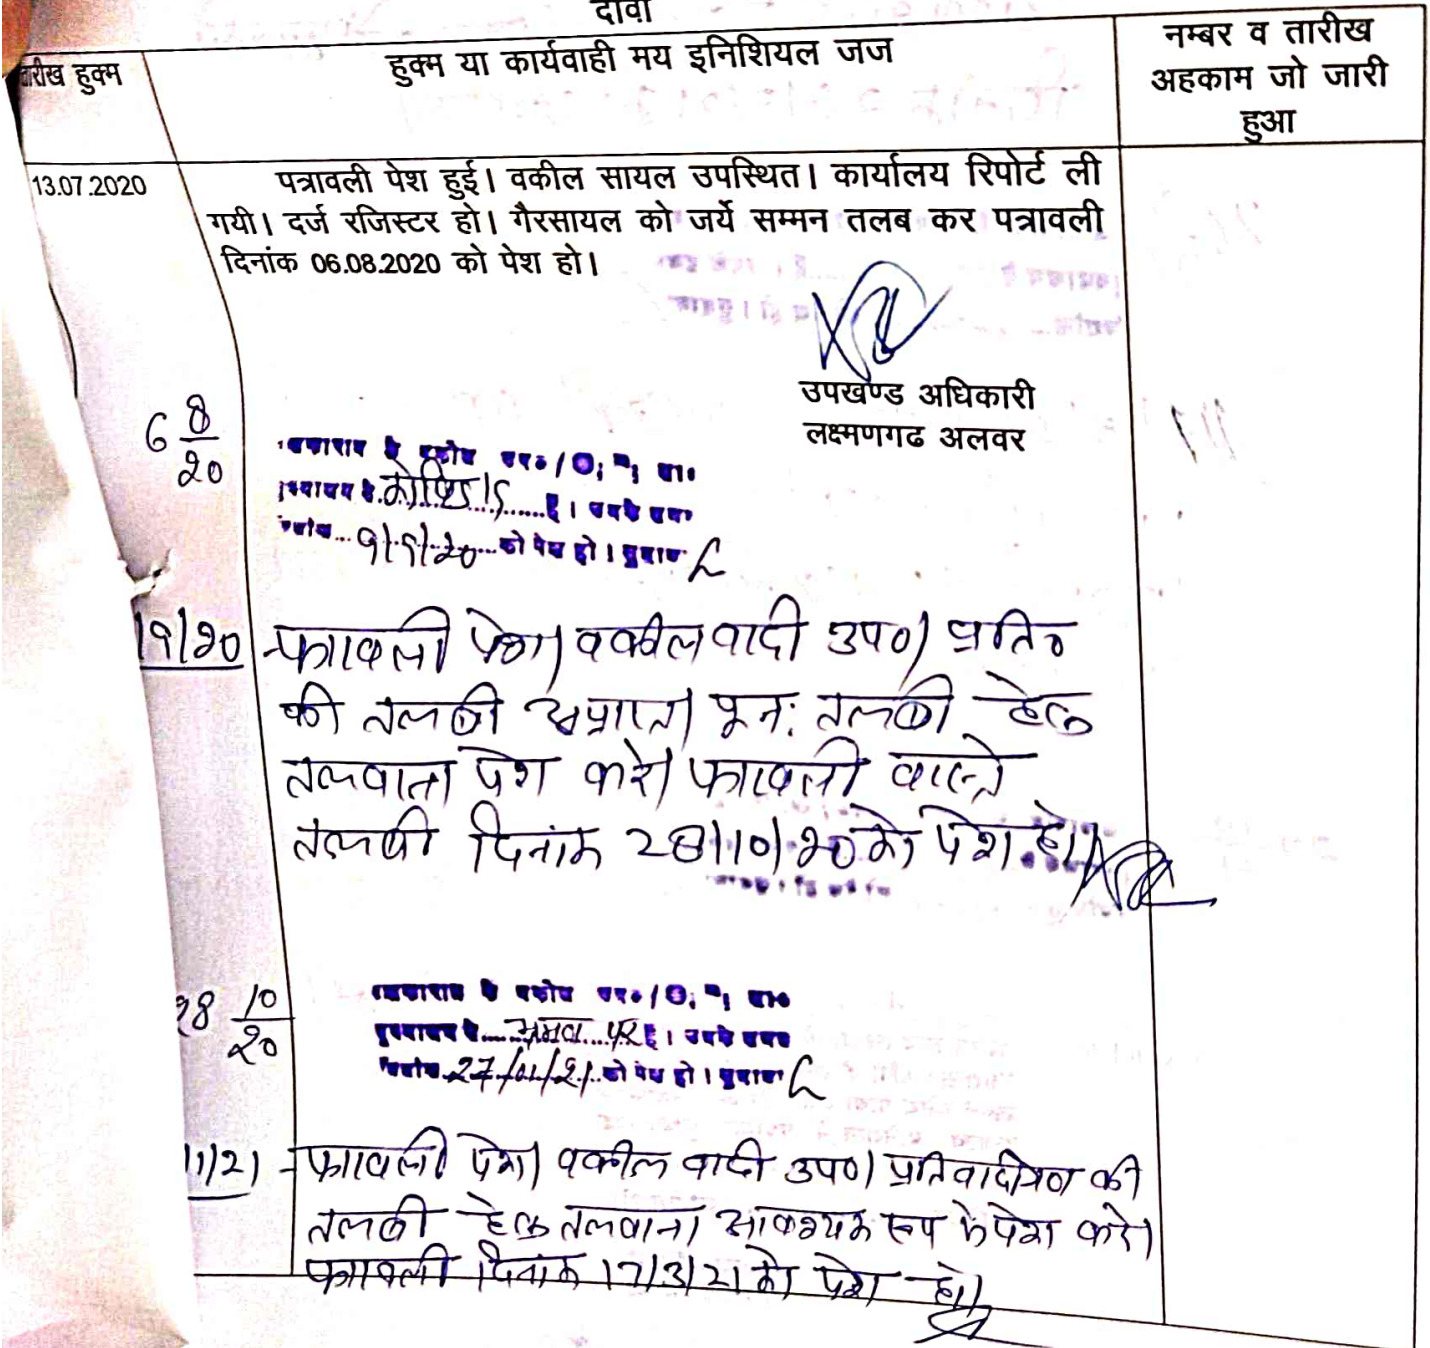 दावा
तारीख हुक्म
हुक्म या कार्यवाही मय इनिशियल जज
नम्बर व तारीख
अहकाम जो जारी
हुआ
13.07.2020
पत्रावली पेश हुई। वकील सायल उपस्थित। कार्यालय रिपोर्ट ली
गयी। दर्ज रजिस्टर हो। गैरसायल को जर्ये सम्मन तलब कर पत्रावली
दिनांक 06.08.2020 को पेश हो।
उपखण्ड अधिकारी
लक्ष्मणगढ अलवर
6 8/20
है।
9/9/20 को पेश हो।
/9/20
पत्रावली पेश। वकील वादी उप०। प्रति०
की तलबी अप्राप्त। पुन: तलबी हेतु
तलवाना पेश करे। पत्रावली वास्ते
तलबी दिनांक 28/10/20 को पेश हो।
28 10/20
है।
27/01/21 को पेश हो।
1/21
पत्रावली पेश। वकील वादी उप०। प्रतिवादीगण की
तलबी हेतु तलवाना आवश्यक रूप से पेश करे।
पत्रावली दिनांक 17/3/21 को पेश हो।